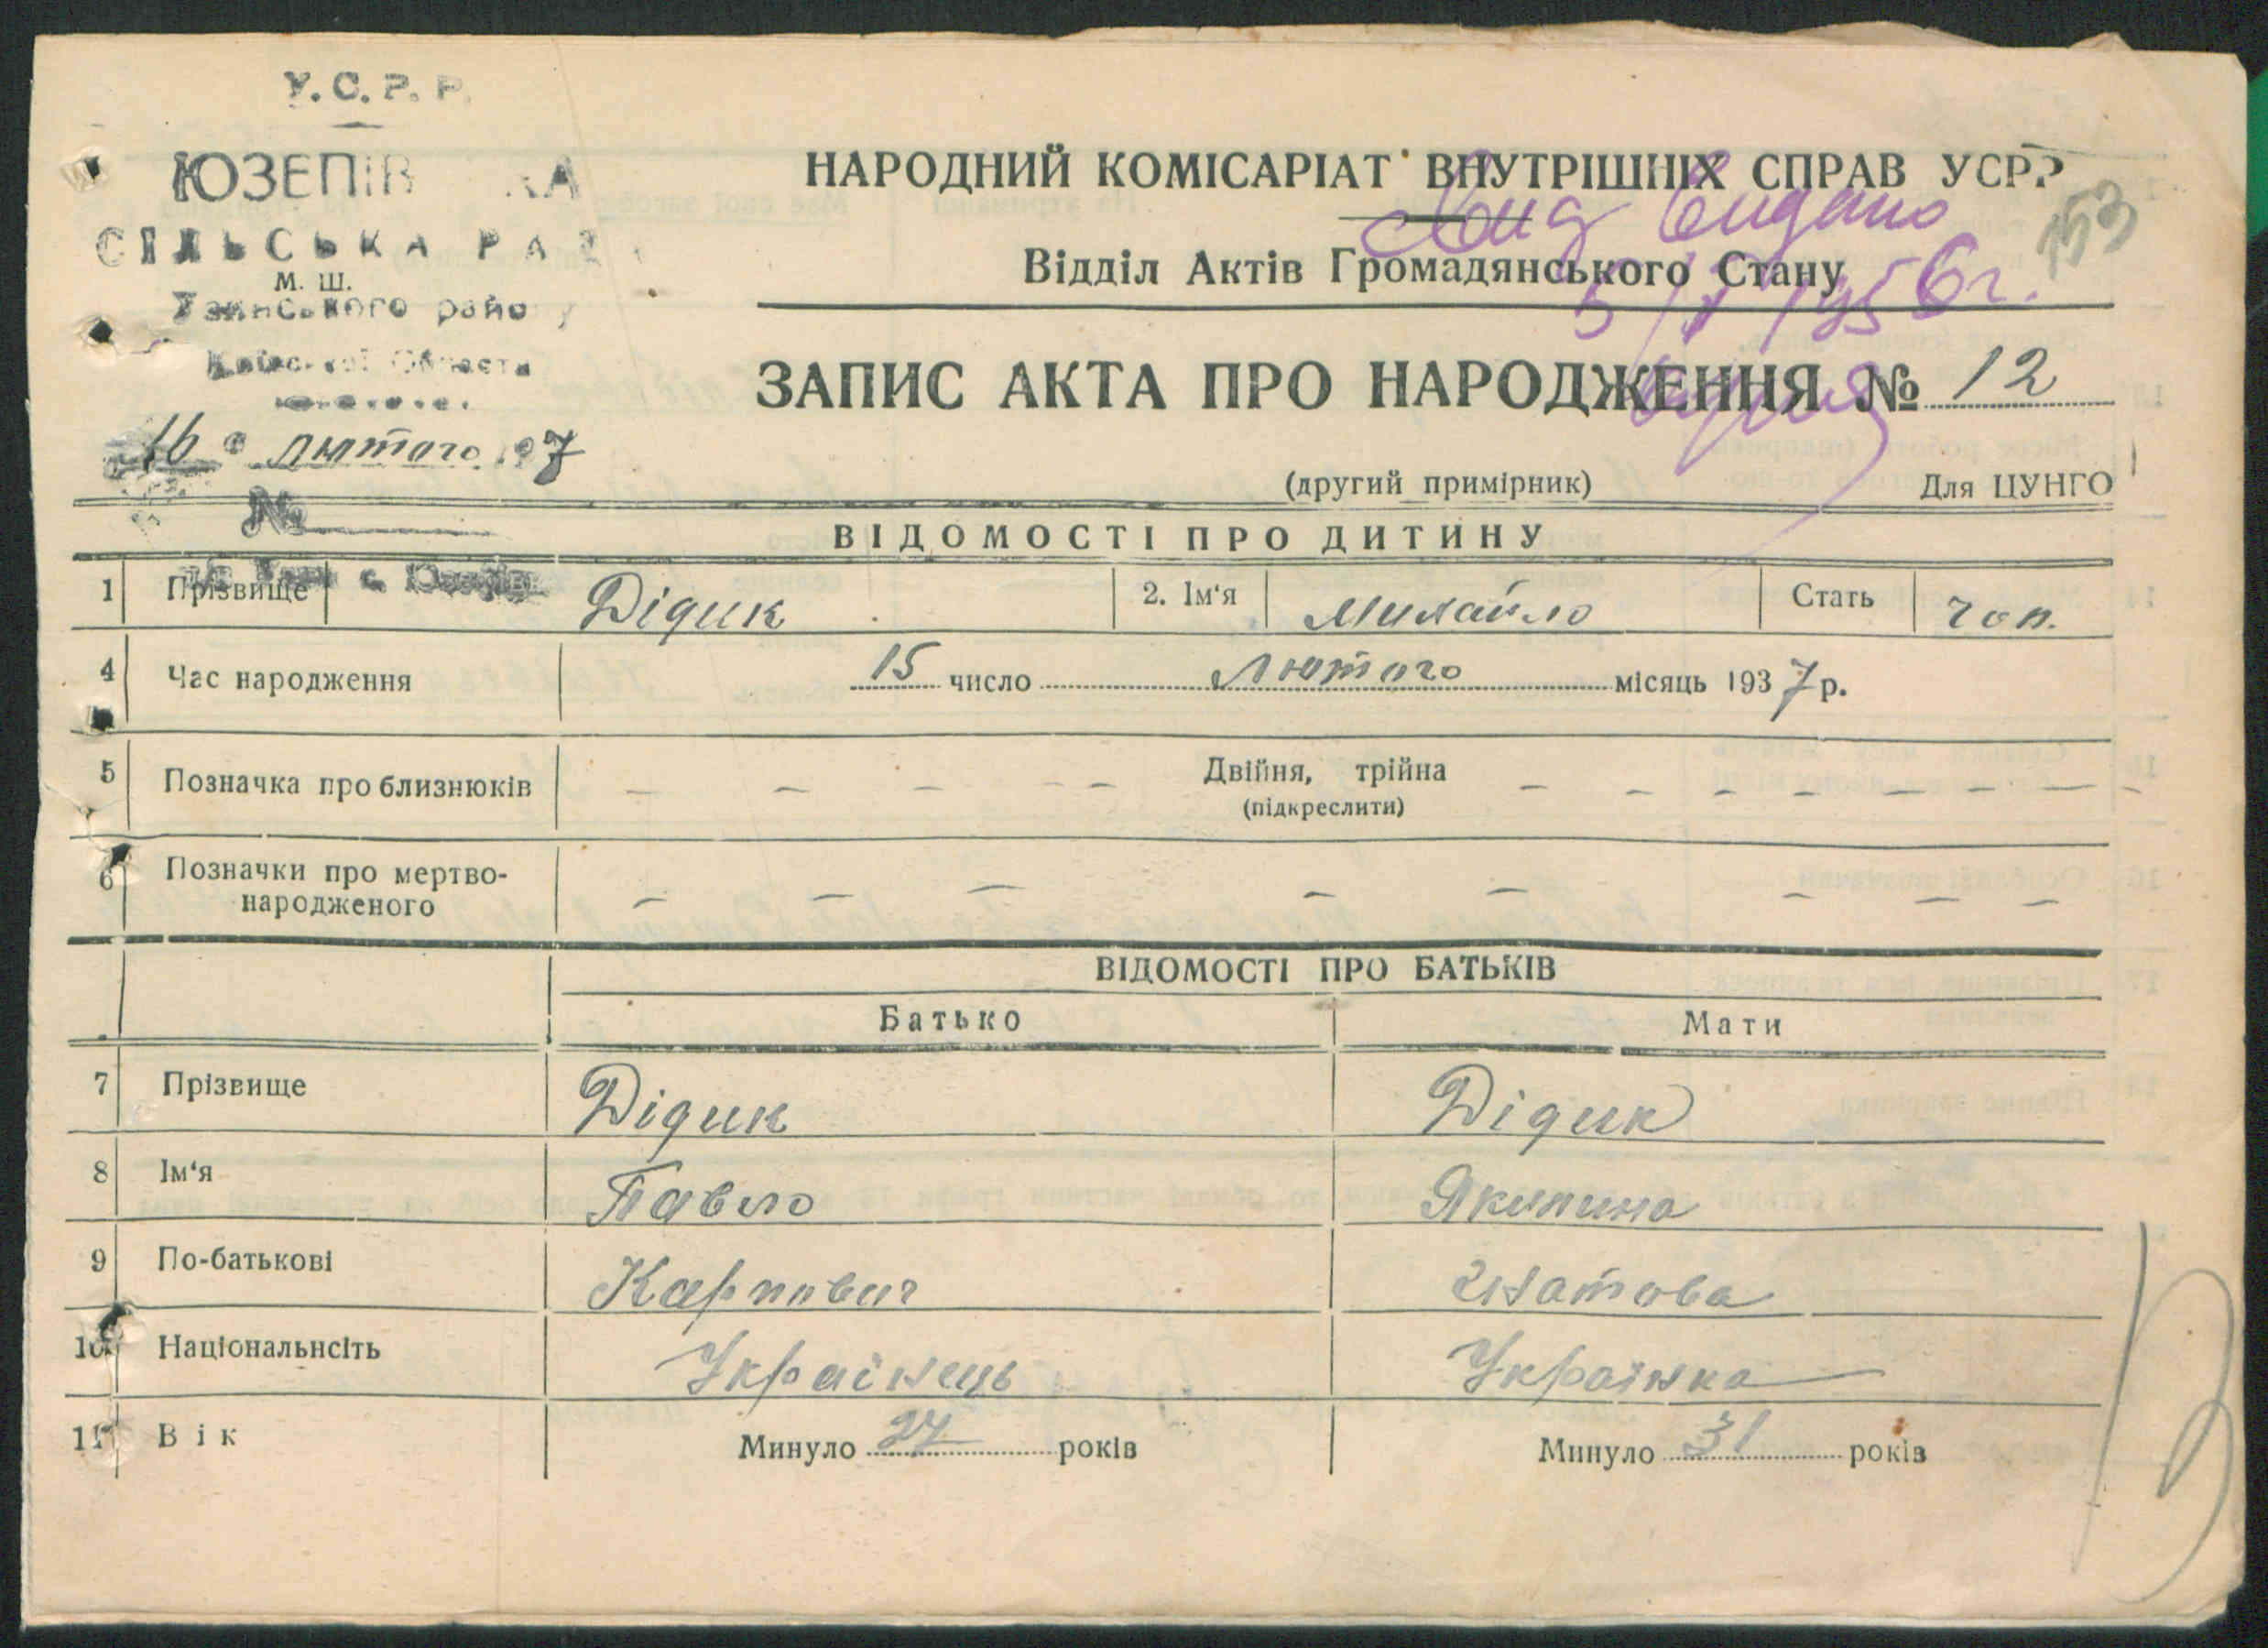 У.С.Р.Р.
ЮЗЕПІВ КА
СІЛЬСЬКА РАДА
М. Ш.
Узинського району
Київської Области
16 лютого 1937
№
НАРОДНИЙ КОМІСАРІАТ ВНУТРІШНІХ СПРАВ УСРР
видано
153
Відділ Актів Громадянського Стану
5/V 1956г.
ЗАПИС АКТА ПРО НАРОДЖЕННЯ № 12
(другий примірник)
Для ЦУНГО
ВІДОМОСТІ ПРО ДИТИНУ
1 Прізвище Дідик 2. Ім'я Михайло Стать чол.
4 Час народження 15 число Лютого місяць 1937 р.
5 Позначка про близнюків – – – – – Двійня, трійна – – – – – – – –
(підкреслити)
6 Позначки про мертво-
народженого – – – – – – – –
ВІДОМОСТІ ПРО БАТЬКІВ
Батько Мати
7 Прізвище Дідик Дідик
8 Ім'я Павло Якилина
9 По-батькові Карпович Гнатова
10 Національнсіть Українець Українка
11 Вік Минуло 27 років Минуло 31 років